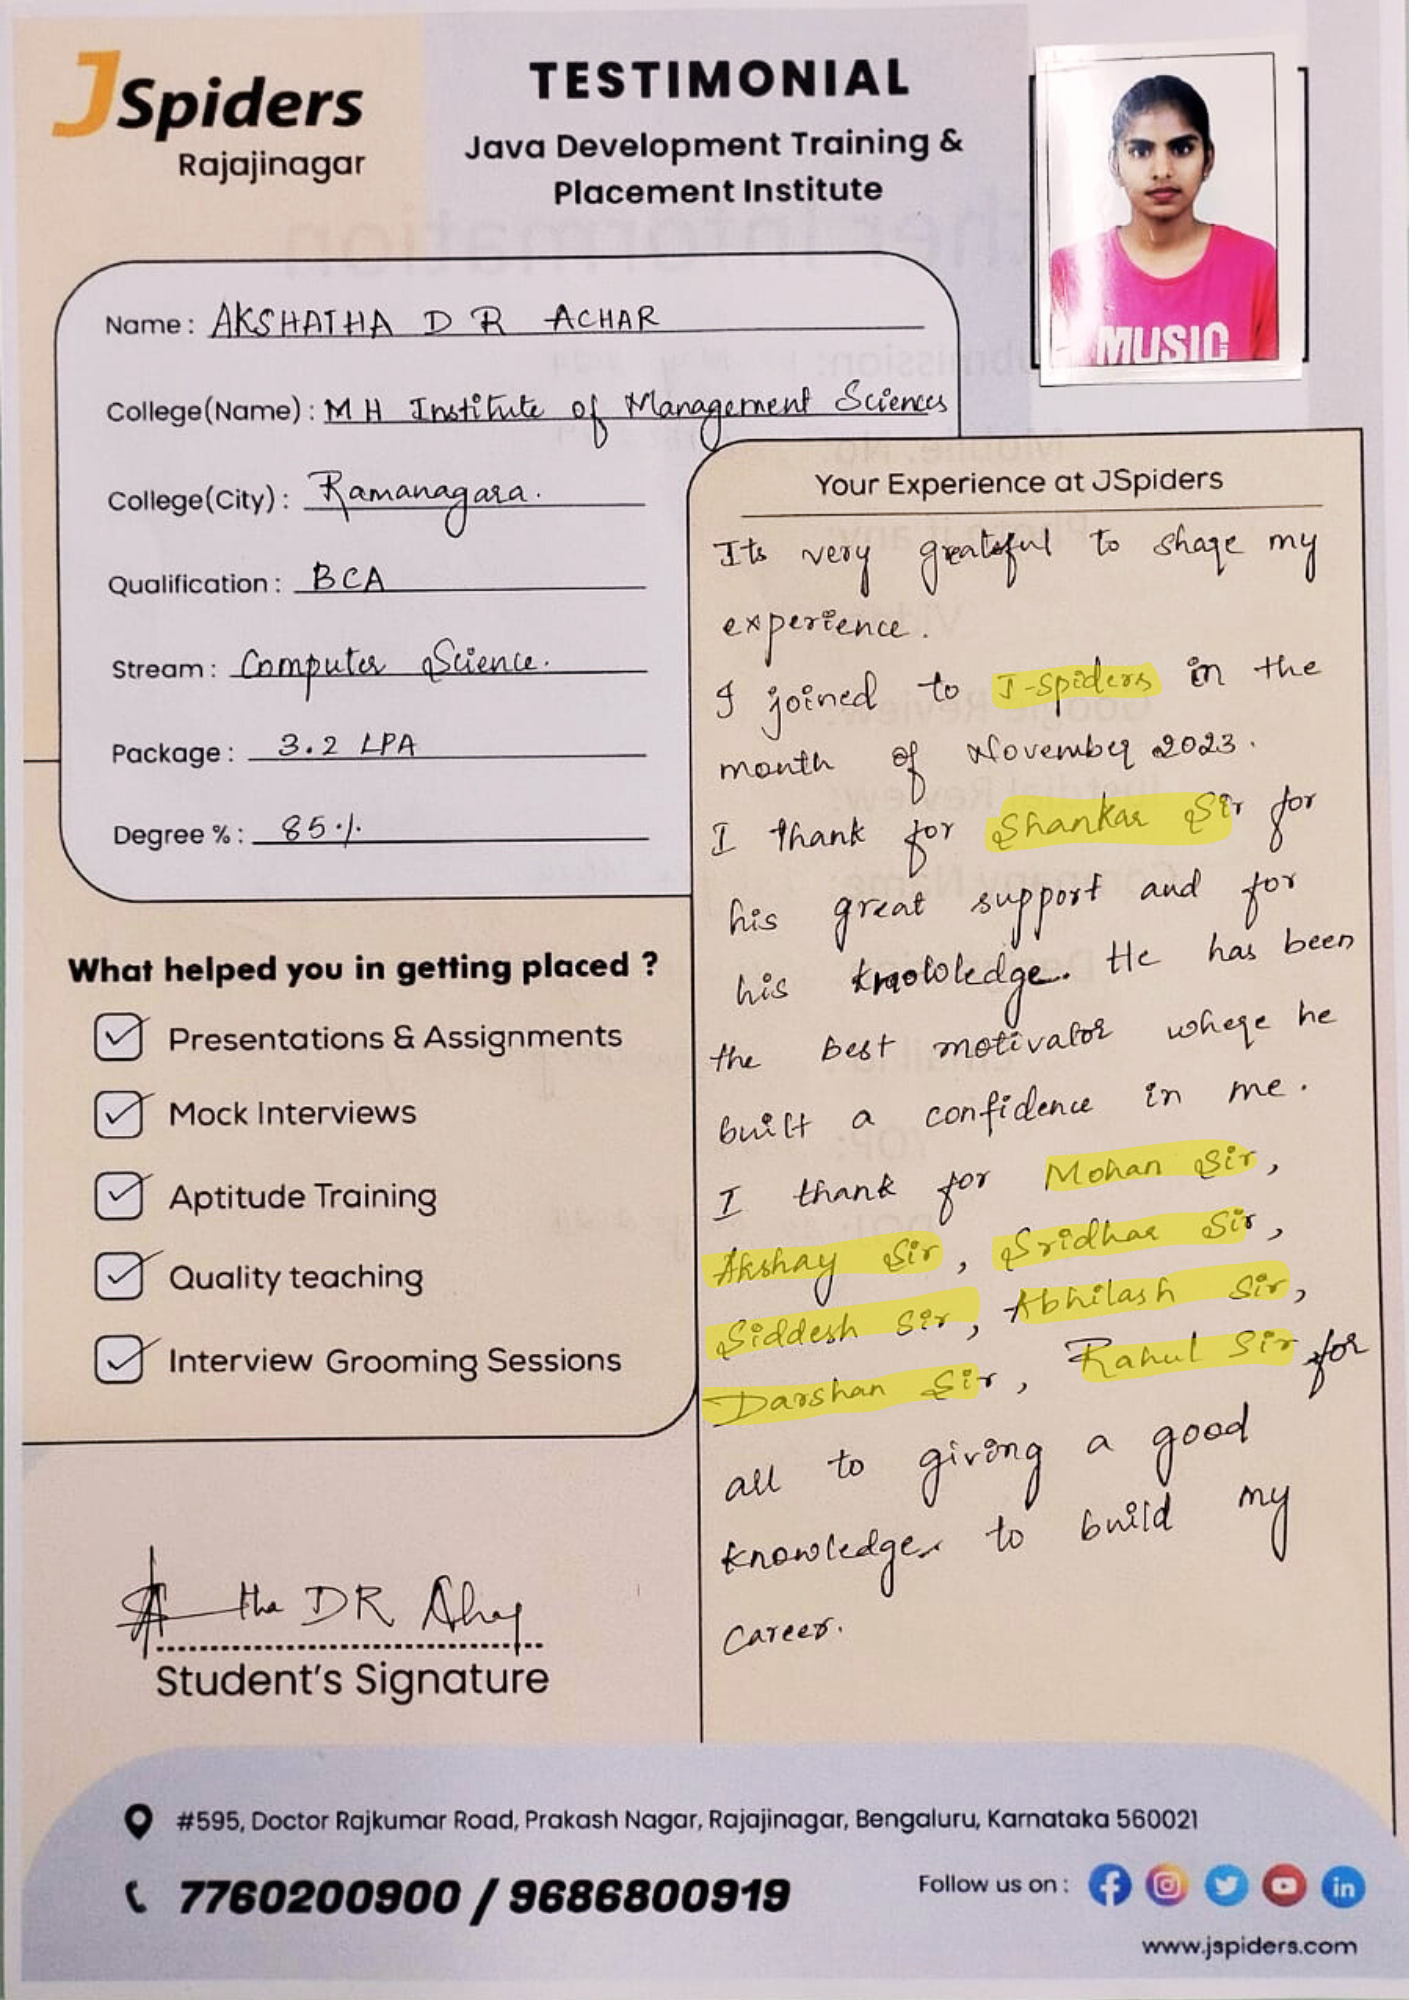 JSpiders
Rajajinagar
TESTIMONIAL
Java Development Training &
Placement Institute
MUSIC
Name : AKSHATHA D R ACHAR
College(Name) : M H Institute of Management Sciences
College(City) : Ramanagara.
Qualification : BCA
Stream : Computer Science.
Package : 3.2 LPA
Degree % : 85%
What helped you in getting placed ?
Presentations & Assignments
Mock Interviews
Aptitude Training
Quality teaching
Interview Grooming Sessions
Your Experience at JSpiders
Its very grateful to share my
experience.
I joined to J-Spiders in the
month of November 2023.
I thank for Shankar Sir for
his great support and for
his knowledge. He has been
the best motivator where he
built a confidence in me.
I thank for Mohan Sir,
Akshay Sir, Sridhar Sir,
Siddesh Sir, Abhilash Sir,
Darshan Sir, Rahul Sir for
all to giving a good
knowledge to build my
career.
tha DR
Student's Signature
#595, Doctor Rajkumar Road, Prakash Nagar, Rajajinagar, Bengaluru, Karnataka 560021
7760200900 / 9686800919
Follow us on :
www.jspiders.com